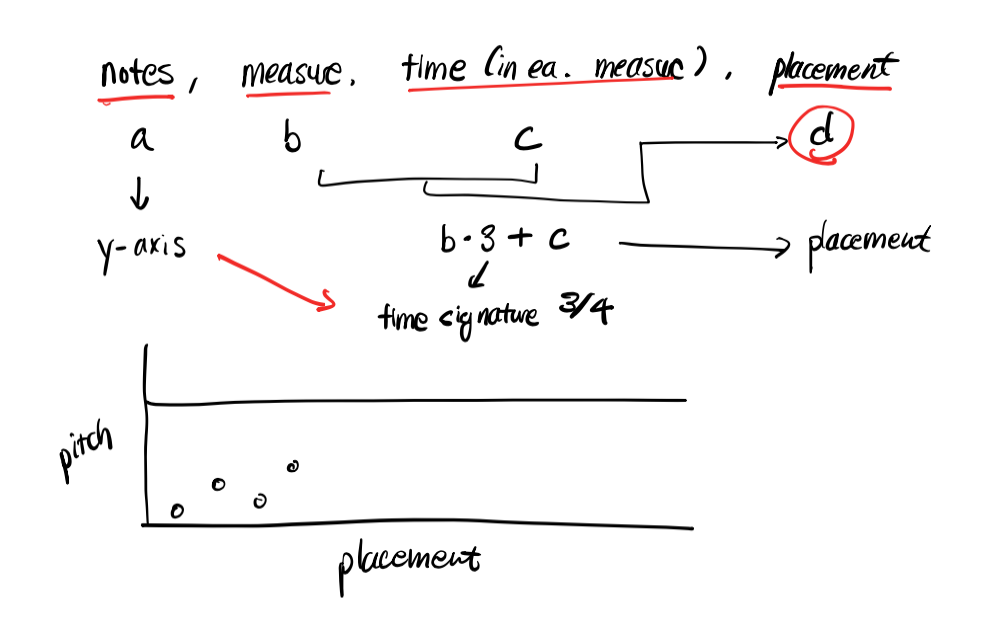 notes, measure, time (in ea. measure), placement
a b c d
y-axis b·3 + c placement
time signature 3/4
pitch
placement